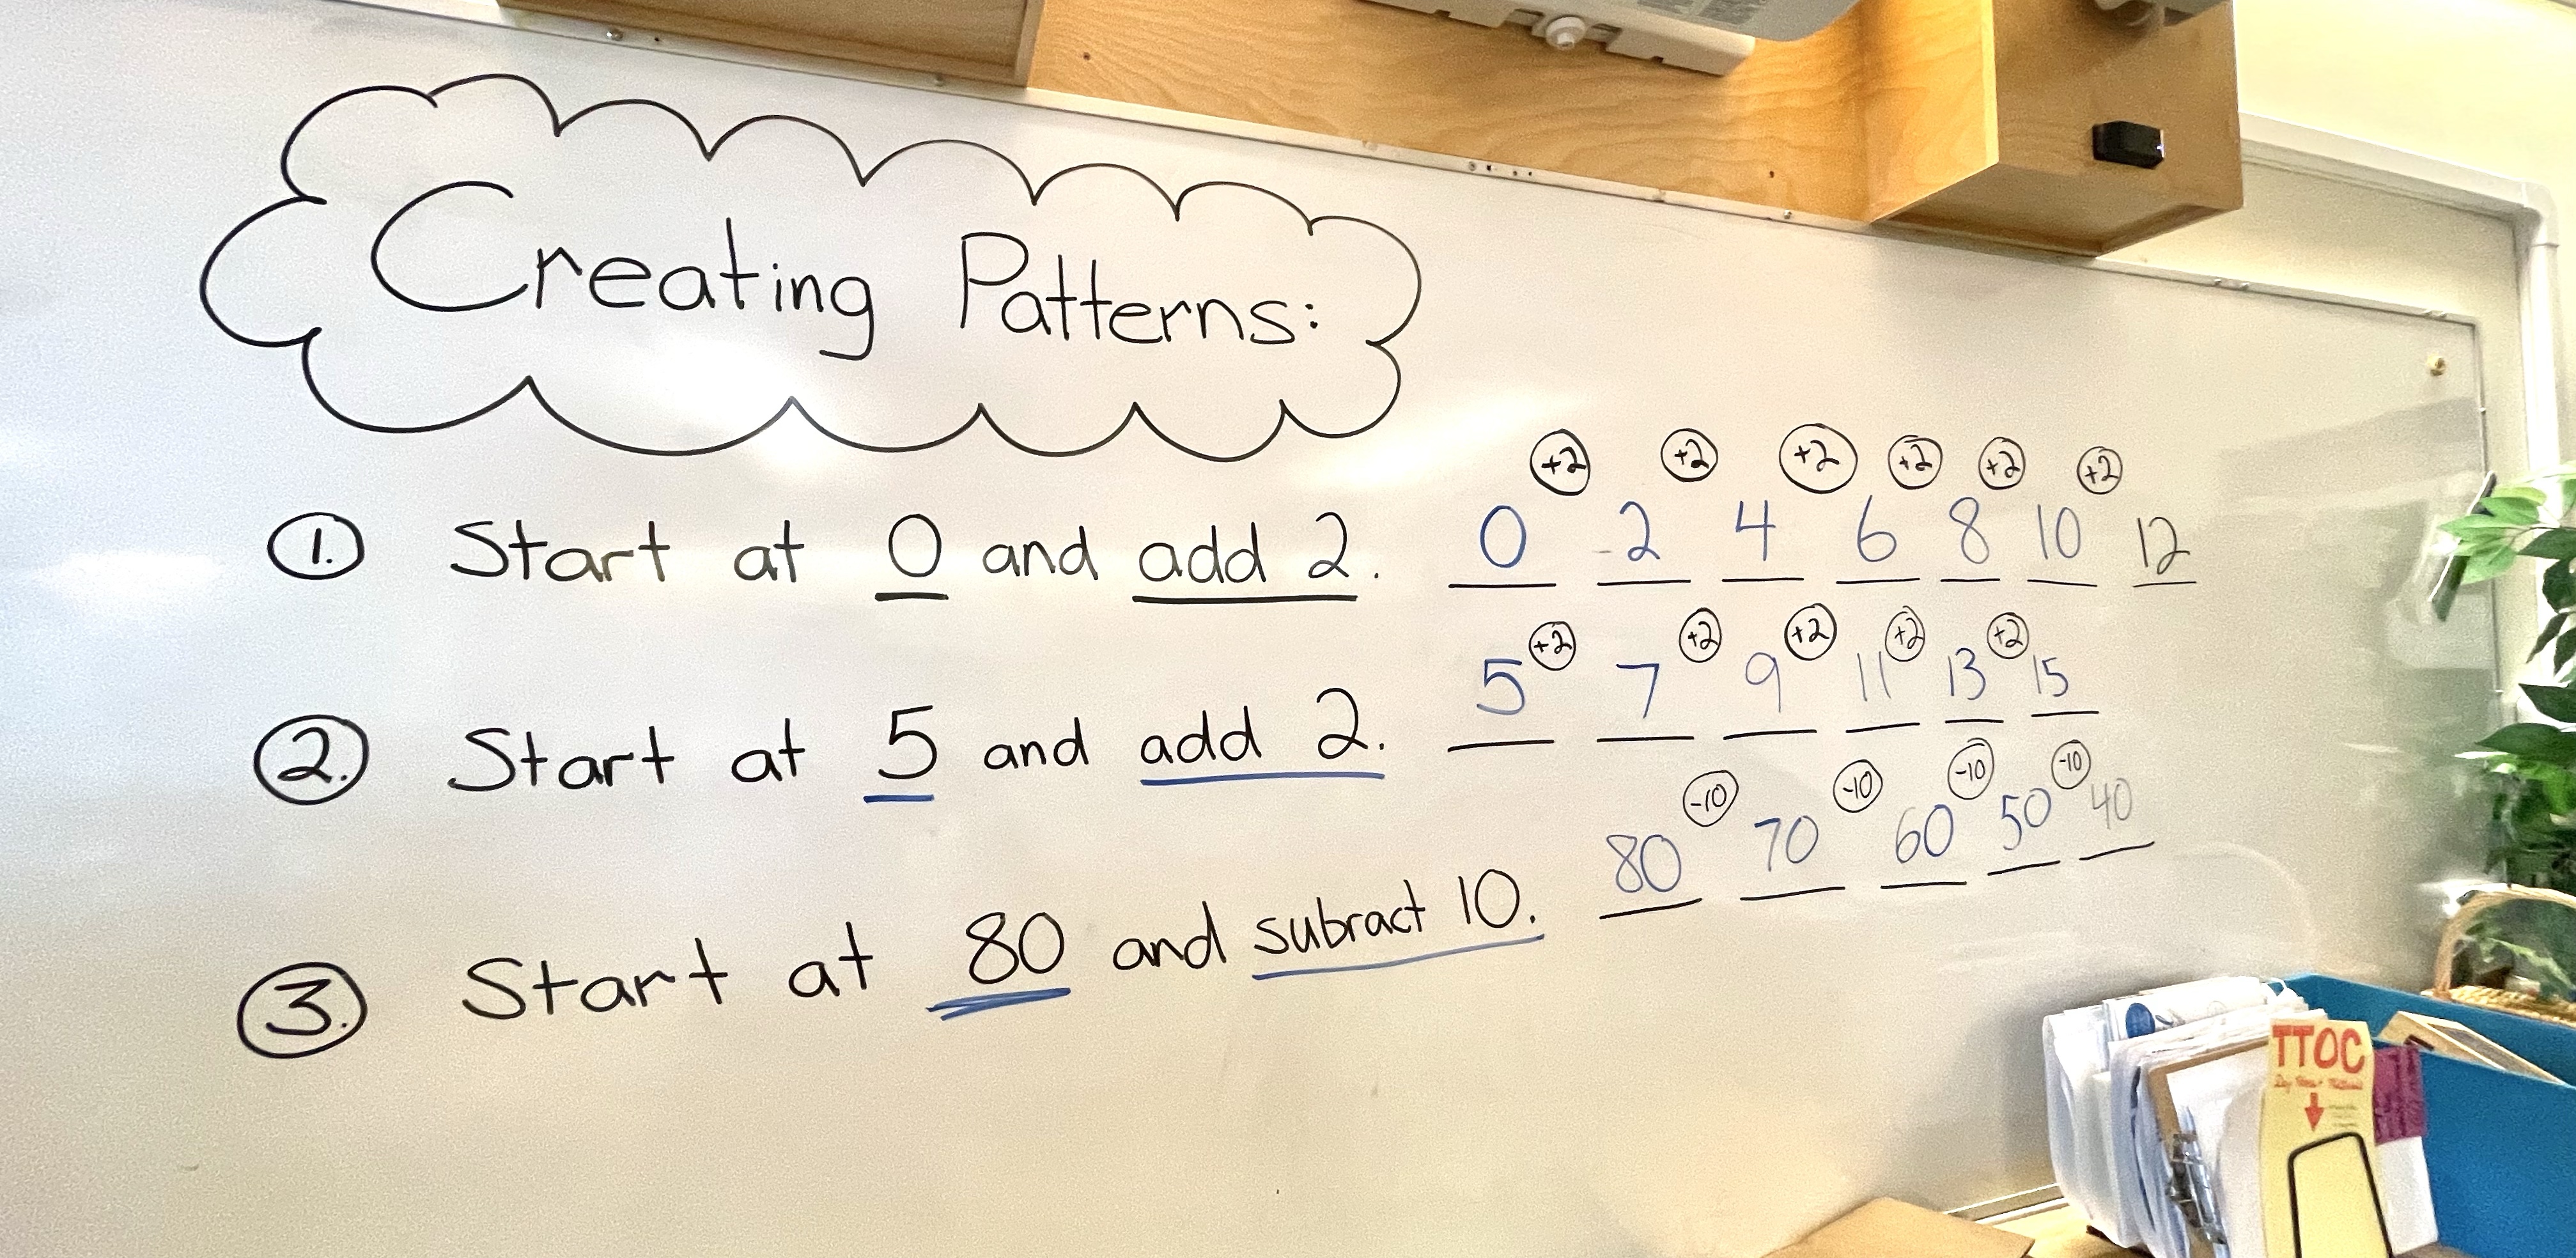 Creating Patterns:
+2 +2 +2 +2 +2 +2
1. Start at 0 and add 2. 0 2 4 6 8 10 12
+2 +2 +2 +2 +2
2. Start at 5 and add 2. 5 7 9 11 13 15
-10 -10 -10 -10
3. Start at 80 and subract 10. 80 70 60 50 40
TTOC